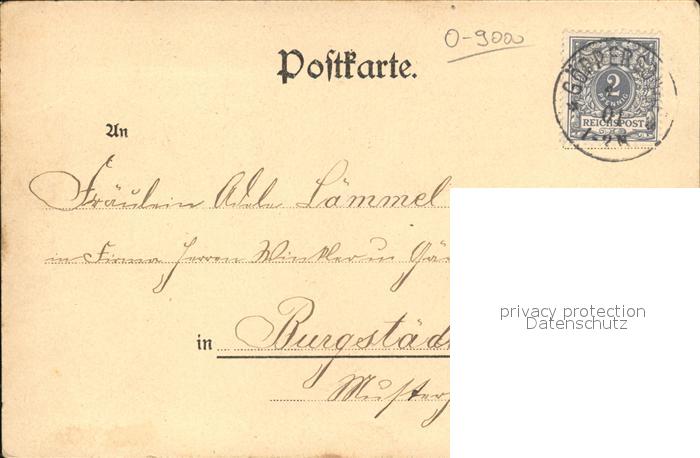 O-900
Postkarte.
2
PFENNIG
REICHSPOST
01
1-2N
An
Fräulein Adele Lämmel
in Firma Herren Winkler u
in Burgstäd
privacy protection
Datenschutz